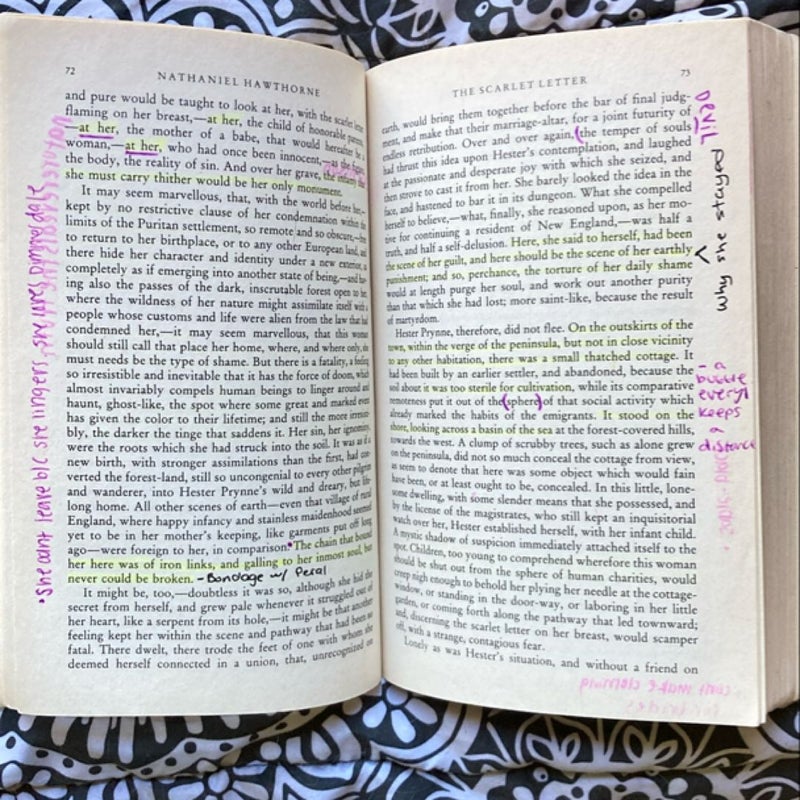 72
NATHANIEL HAWTHORNE
and pure would be taught to look at her, with the scarlet letter
flaming on her breast,—at her, the child of honorable parents,
—at her, the mother of a babe, that would hereafter be a
woman,—at her, who had once been innocent,—as the figure,
the body, the reality of sin. And over her grave, the infamy that
she must carry thither would be her only monument.
It may seem marvellous, that, with the world before her,—
kept by no restrictive clause of her condemnation within the
limits of the Puritan settlement, so remote and so obscure,—free
to return to her birthplace, or to any other European land, and
there hide her character and identity under a new exterior, as
completely as if emerging into another state of being,—and hav-
ing also the passes of the dark, inscrutable forest open to her,
where the wildness of her nature might assimilate itself with a
people whose customs and life were alien from the law that had
condemned her,—it may seem marvellous, that this woman
should still call that place her home, where, and where only, she
must needs be the type of shame. But there is a fatality, a feeling
so irresistible and inevitable that it has the force of doom, which
almost invariably compels human beings to linger around and
haunt, ghost-like, the spot where some great and marked event
has given the color to their lifetime; and still the more irresisti-
bly, the darker the tinge that saddens it. Her sin, her ignominy,
were the roots which she had struck into the soil. It was as if a
new birth, with stronger assimilations than the first, had con-
verted the forest-land, still so uncongenial to every other pilgrim
and wanderer, into Hester Prynne's wild and dreary, but life-
long home. All other scenes of earth—even that village of rural
England, where happy infancy and stainless maidenhood seemed
yet to be in her mother's keeping, like garments put off long
ago—were foreign to her, in comparison. The chain that bound
her here was of iron links, and galling to her inmost soul, but
never could be broken. - Bondage w/ Peral
It might be, too,—doubtless it was so, although she hid the
secret from herself, and grew pale whenever it struggled out of
her heart, like a serpent from its hole,—it might be that another
feeling kept her within the scene and pathway that had been so
fatal. There dwelt, there trode the feet of one with whom she
deemed herself connected in a union, that, unrecognized on
THE SCARLET LETTER
73
earth, would bring them together before the bar of final judg-
ment, and make that their marriage-altar, for a joint futurity of
endless retribution. Over and over again, (the temper of souls)
had thrust this idea upon Hester's contemplation, and laughed
at the passionate and desperate joy with which she seized, and
then strove to cast it from her. She barely looked the idea in the
face, and hastened to bar it in its dungeon. What she compelled
herself to believe,—what, finally, she reasoned upon, as her mo-
tive for continuing a resident of New England,—was half a
truth, and half a self-delusion. Here, she said to herself, had been
the scene of her guilt, and here should be the scene of her earthly
punishment; and so, perchance, the torture of her daily shame
would at length purge her soul, and work out another purity
than that which she had lost; more saint-like, because the result
of martyrdom.
Hester Prynne, therefore, did not flee. On the outskirts of the
town, within the verge of the peninsula, but not in close vicinity
to any other habitation, there was a small thatched cottage. It
had been built by an earlier settler, and abandoned, because the
soil about it was too sterile for cultivation, while its comparative
remoteness put it out of the (sphere) of that social activity which
already marked the habits of the emigrants. It stood on the
shore, looking across a basin of the sea at the forest-covered hills,
towards the west. A clump of scrubby trees, such as alone grew
on the peninsula, did not so much conceal the cottage from view,
as seem to denote that here was some object which would fain
have been, or at least ought to be, concealed. In this little, lone-
some dwelling, with some slender means that she possessed, and
by the license of the magistrates, who still kept an inquisitorial
watch over her, Hester established herself, with her infant child.
A mystic shadow of suspicion immediately attached itself to the
spot. Children, too young to comprehend wherefore this woman
should be shut out from the sphere of human charities, would
creep nigh enough to behold her plying her needle at the cottage-
window, or standing in the door-way, or laboring in her little
garden, or coming forth along the pathway that led townward;
and, discerning the scarlet letter on her breast, would scamper
off, with a strange, contagious fear.
Lonely as was Hester's situation, and without a friend on
DEVIL
why she stayed
- a
bubble
every1
keeps
a
distance